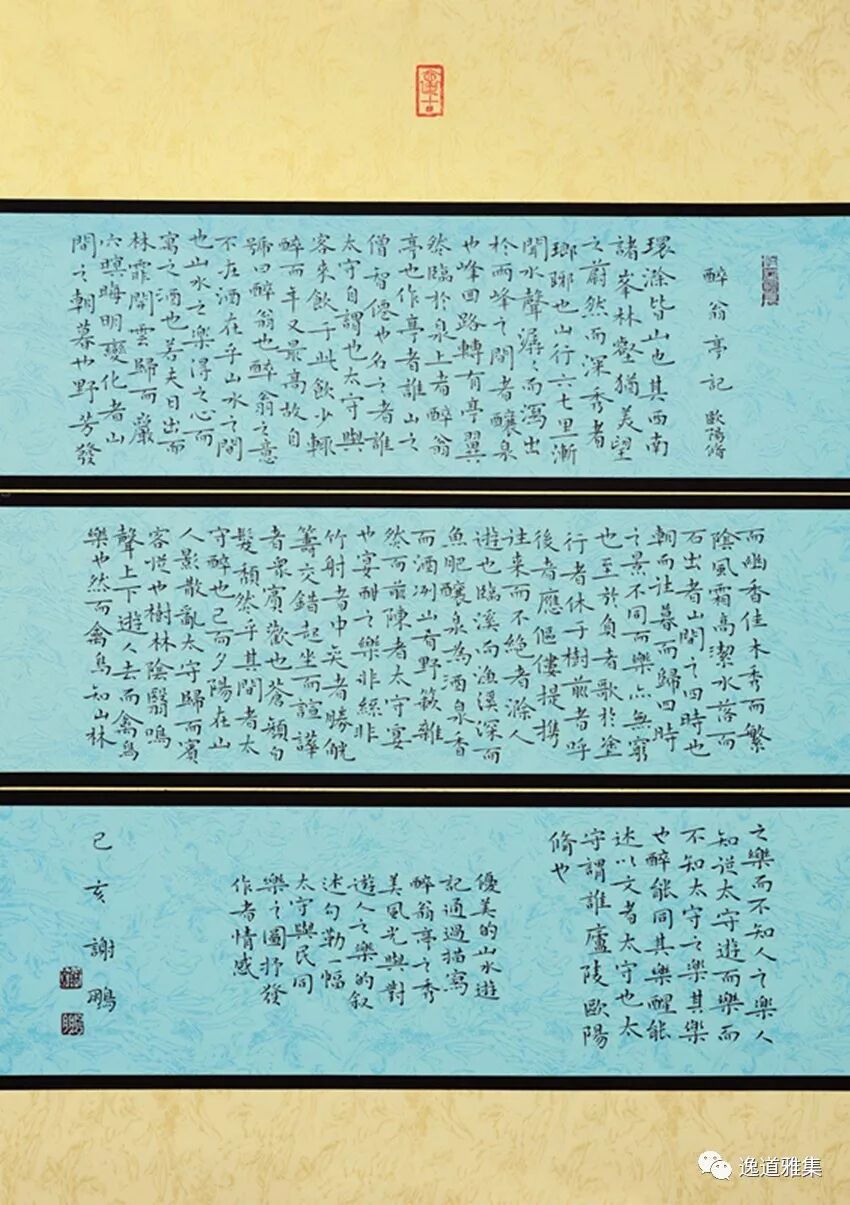 醉翁亭記 歐陽脩
環滁皆山也其西南
諸峯林壑猶美望
之蔚然而深秀者
瑯琊也山行六七里漸
聞水聲潺々而瀉出
於兩峰之間者釀泉
也峰回路轉有亭翼
然臨於泉上者醉翁
亭也作亭者誰山之
僧智僊也名之者誰
太守自謂也太守與
客來飲于此飲少輒
醉而年又最高故自
號曰醉翁也醉翁之意
不在酒在乎山水之間
也山水之樂淂之心而
寓之酒也若夫日出而
林霏開雲歸而巖
穴暝晦明變化者山
間之朝暮也野芳發
而幽香佳木秀而繁
陰風霜高潔水落而
石出者山間之四時也
朝而往暮而歸四時
之景不同而樂亦無窮
也至於負者歌於塗
行者休于樹前者呼
後者應傴僂提攜
往来而不絕者滁人
遊也臨溪而漁溪深而
魚肥釀泉為酒泉香
而酒洌山肴野蔌雜
然而前陳者太守宴
也宴酣之樂非絲非
竹射者中奕者勝觥
籌交錯起坐而諠譁
者眾賓歡也蒼顏白
髮頹然乎其間者太
守醉也已而夕陽在山
人影散亂太守歸而賓
客從也樹林陰翳鳴
聲上下遊人去而禽鳥
樂也然而禽鳥知山林
之樂而不知人之樂人
知從太守遊而樂而
不知太守之樂其樂
也醉能同其樂醒能
述以文者太守也太
守謂誰廬陵歐陽
脩也
優美的山水遊
記通過描寫
醉翁亭之秀
美風光與對
遊人之樂的叙
述勾勒一幅
太守與民同
樂之圖抒發
作者情感
己亥謝鵬
逸道雅集